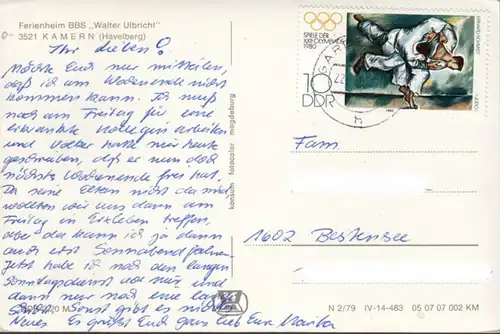 Ferienheim BBS „Walter Ulbricht"
3521 KAMERN (Havelberg)
Ihr Lieben!
Möchte Euch nur mitteilen,
daß ich am Wochenende nicht
kommen kann. Ich muß
noch am Freitag für eine
erkrankte Kollegin arbeiten
und Volker hatte mir heute
geschrieben, daß er nun doch
nächstes Wochenende frei hat.
Da seine Eltern nicht da sind
wollten wir uns dann am
Freitag in treffen,
aber da kann ich ja dann
auch erst Sonnabend fahren.
Jetzt habe ich noch den langen
Sonntagsdienst vor mir und
dann nur noch eine
Sonst gibt es nichts
Neues. Es grüßt Euch ganz lieb Eure
konsum fotocolor magdeburg
SPIELE DER
XXII. OLYMPIADE
1980
10
DDR
Fam
1602 Bestensee
N 2/79 IV-14-483 05 07 07 002 KM